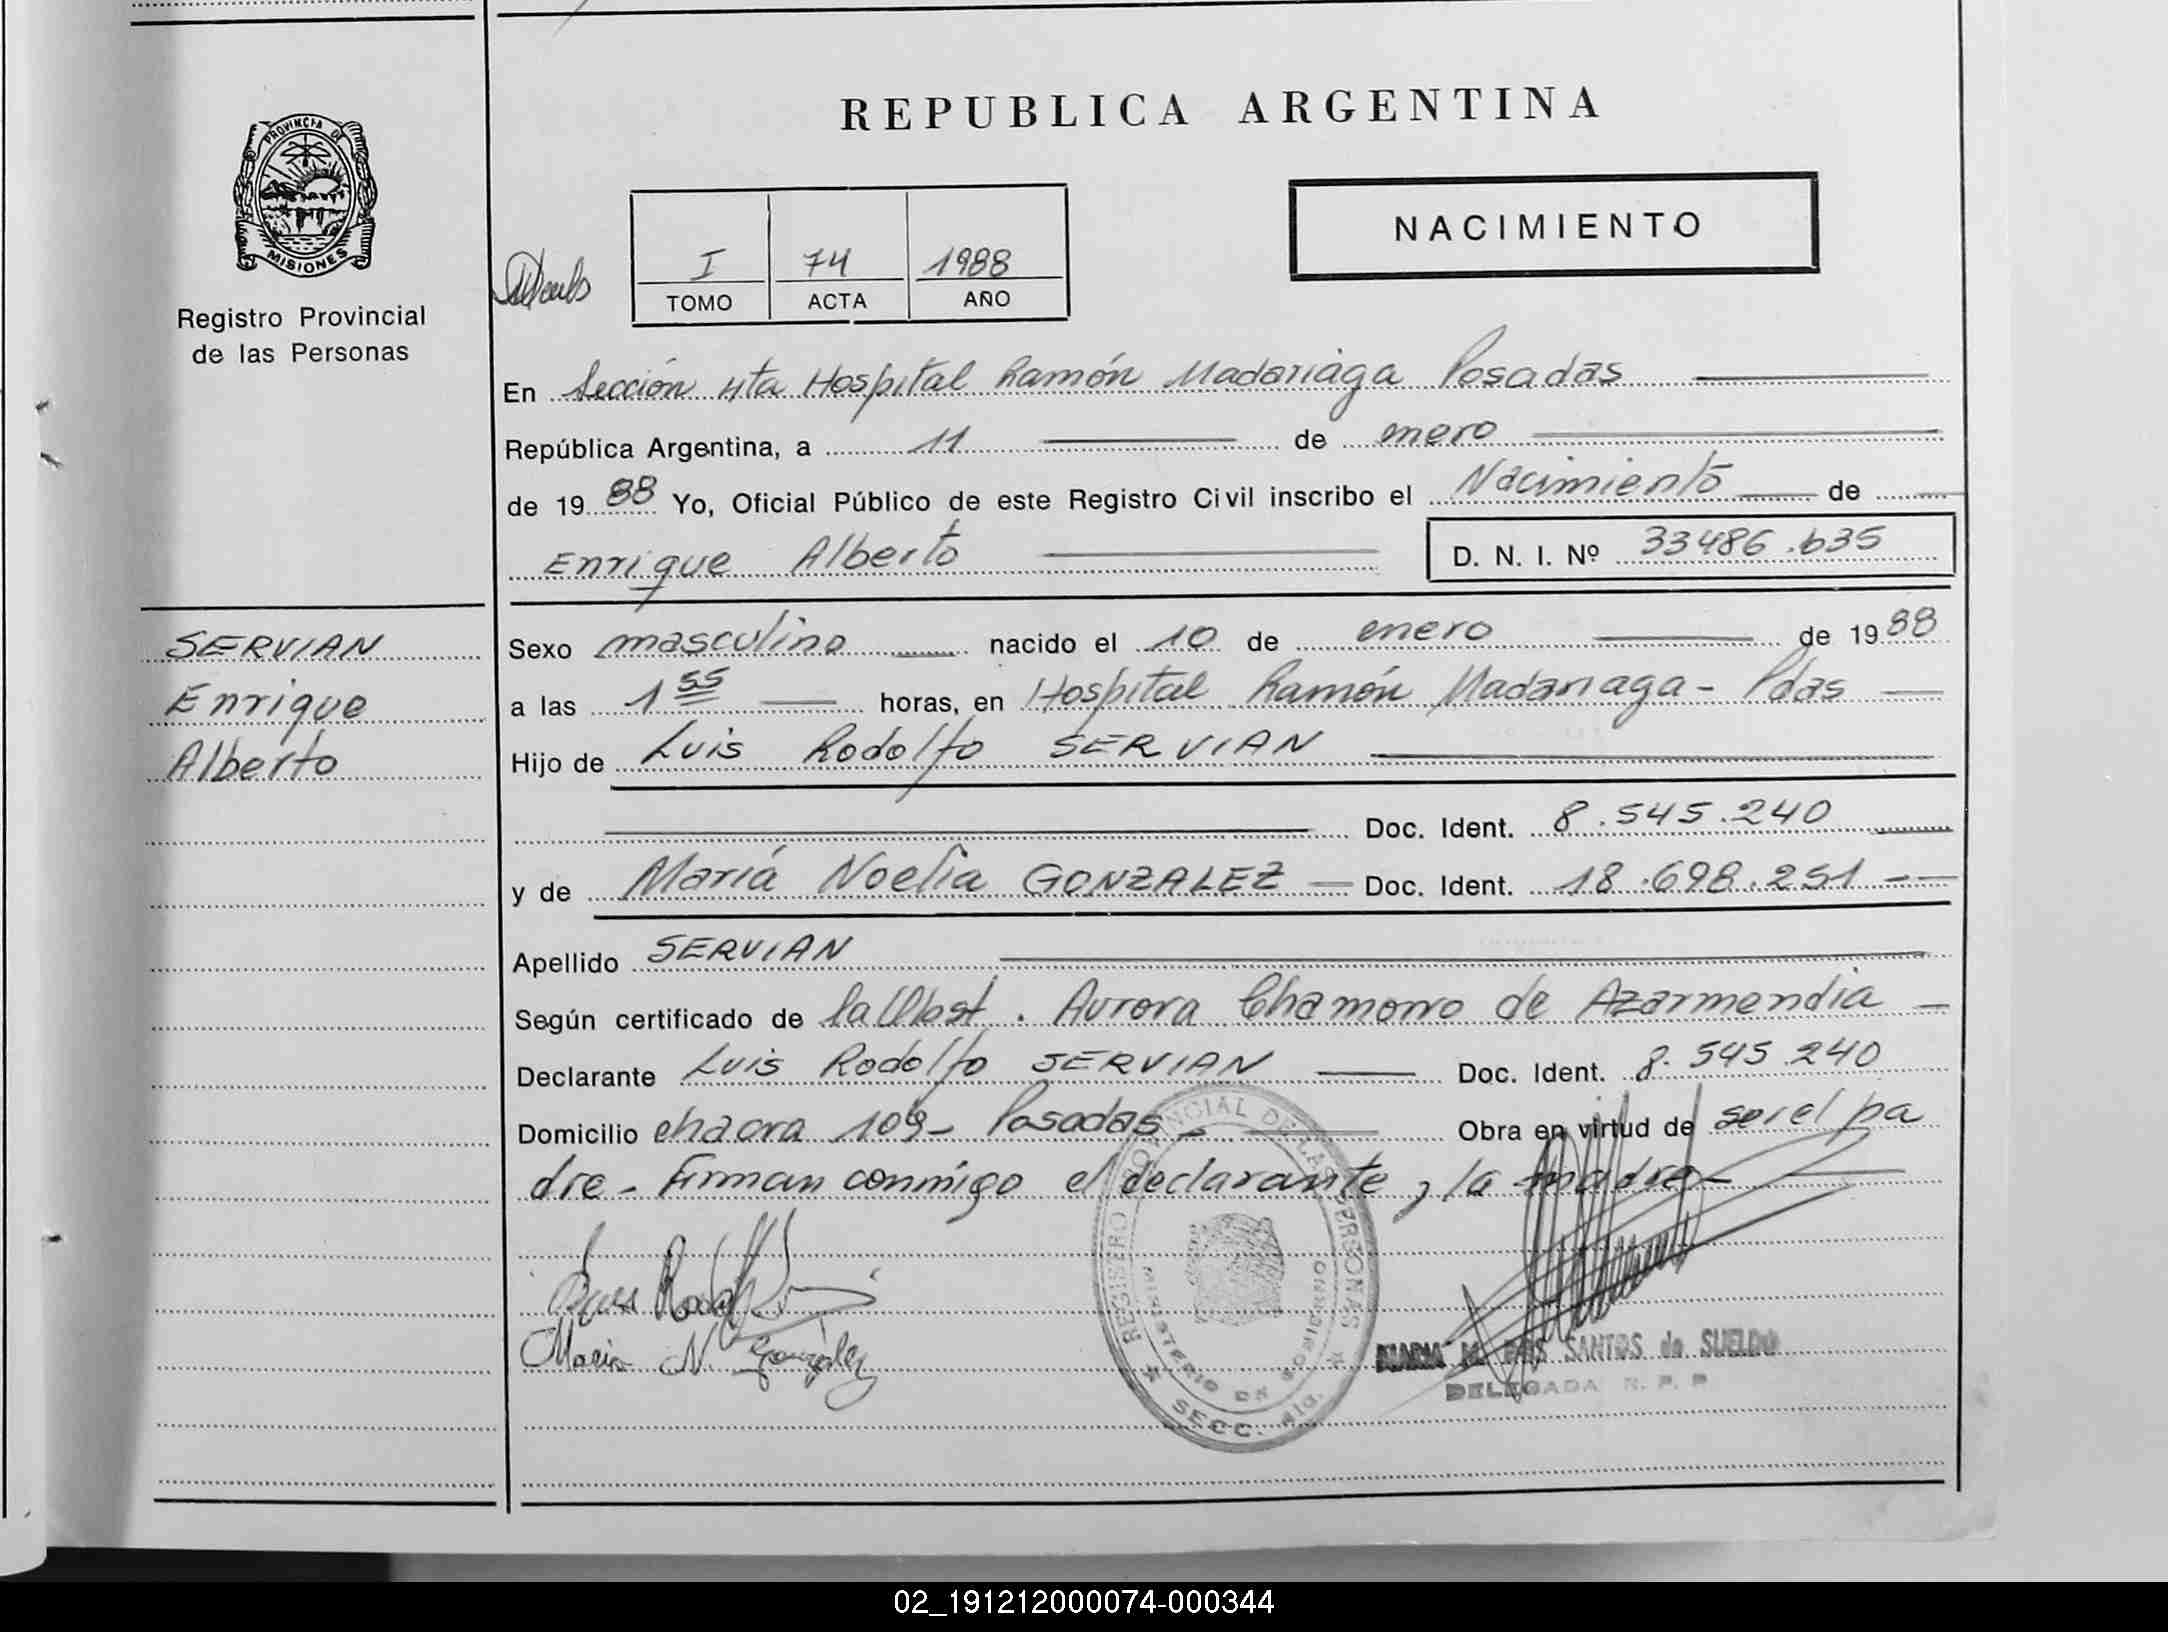 REPUBLICA ARGENTINA
PROVINCIA DE
MISIONES
Registro Provincial
de las Personas
NACIMIENTO
I 74 1988
TOMO ACTA AÑO
En Sección 4ta Hospital Ramón Madariaga Posadas
República Argentina, a 11 de enero
de 1988 Yo, Oficial Público de este Registro Civil inscribo el Nacimiento de
Enrique Alberto D. N. I. Nº 33486.635
SERVIAN
Enrique
Alberto
Sexo masculino nacido el 10 de enero de 1988
a las 1 55 horas, en Hospital Ramón Madariaga - Pdas
Hijo de Luis Rodolfo SERVIAN
Doc. Ident. 8.545.240
y de María Noelia GONZALEZ Doc. Ident. 18.698.251
Apellido SERVIAN
Según certificado de la Obst. Aurora Chamorro de Azarmendia
Declarante Luis Rodolfo SERVIAN Doc. Ident. 8.545.240
Domicilio chacra 109 - Posadas - Obra en virtud de ser el pa
dre - Firman conmigo el declarante y la madre -
María N. González
REGISTRO PROVINCIAL DE LAS PERSONAS
MINISTERIO DE GOBIERNO
SECC. 4ta.
MARIA M. SANTOS de SUELDO
DELEGADA R. P. P.
02_191212000074-000344